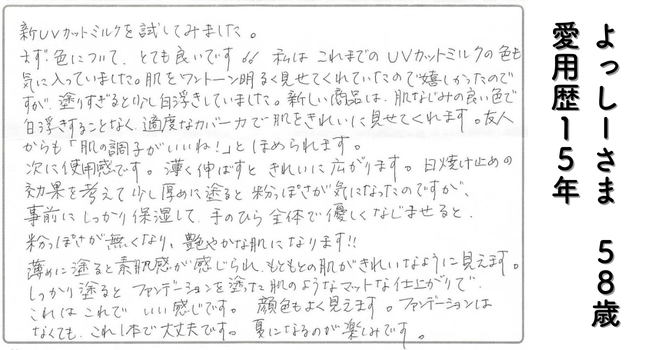 新UVカットミルクを試してみました。
まず色について、とても良いです!! 私は これまでの UVカットミルクの色も
気に入っていました。肌をワントーン明るく見せてくれていたので嬉しかったので
すが、塗りすぎると少し白浮きしていました。新しい商品は、肌なじみの良い色で
白浮きすることなく、適度なカバー力で肌をきれいに見せてくれます。友人
からも「肌の調子がいいね!」と ほめられます。
次に使用感です。薄く伸ばすと きれいに広がります。日焼け止めの
効果を考えて少し厚めに塗ると 粉っぽさが気になったのですが、
事前に しっかり 保湿して、手のひら 全体で優しくなじませると、
粉っぽさが無くなり、艶やかな肌になります!!
薄めに塗ると素肌感が感じられ、もともとの肌がきれいなように見えます。
しっかり塗ると ファンデーションを塗った肌のようなマットな仕上がりで、
これは これで いい感じです。 顔色もよく見えます。ファンデーションは
なくても、これ1本で大丈夫です。 夏になるのが楽しみです。
よっしーさま 58歳
愛用歴15年